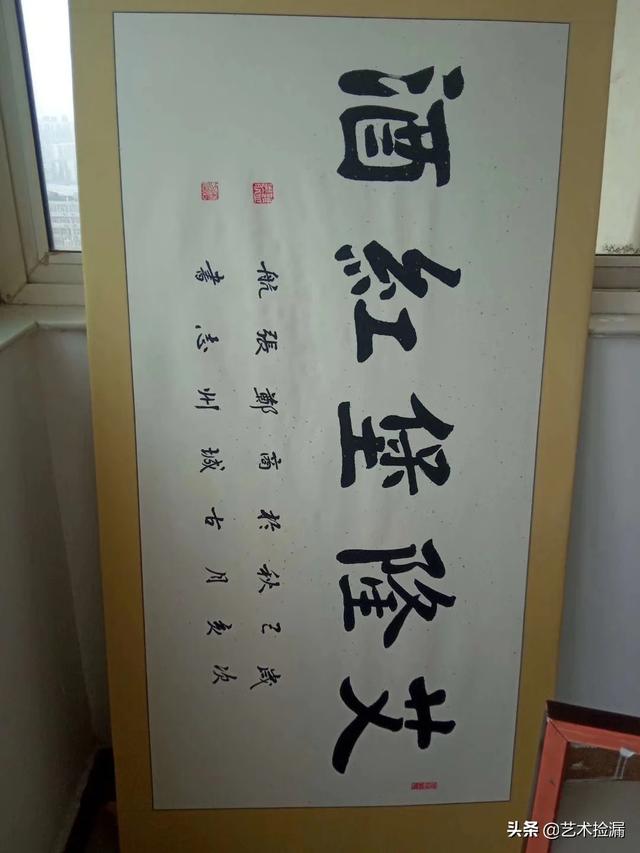 艾隆堡紅酒
歲次
己亥
秋月
於古
商城
鄭州
張志
航書
头条 @艺术捡漏